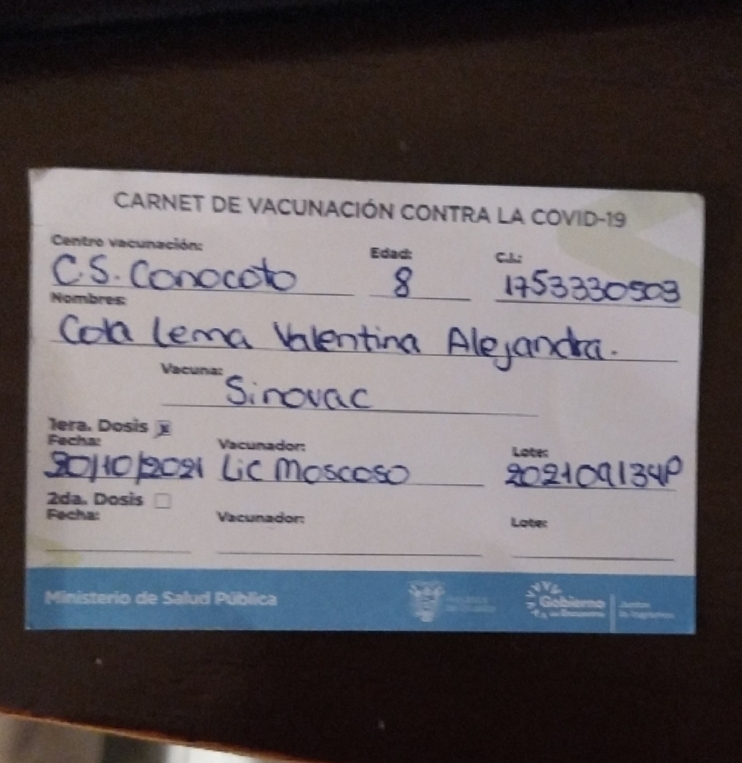 CARNET DE VACUNACIÓN CONTRA LA COVID-19
Centro vacunación: Edad: C.I.:
C.S. Conocoto 8 1753330503
Nombres:
Cola Lema Valentina Alejandra.
Vacuna:
Sinovac
1era. Dosis x
Fecha: Vacunador: Lote:
30/10/2021 Lic Moscoso 202109134P
2da. Dosis
Fecha: Vacunador: Lote:
Ministerio de Salud Pública
Gobierno